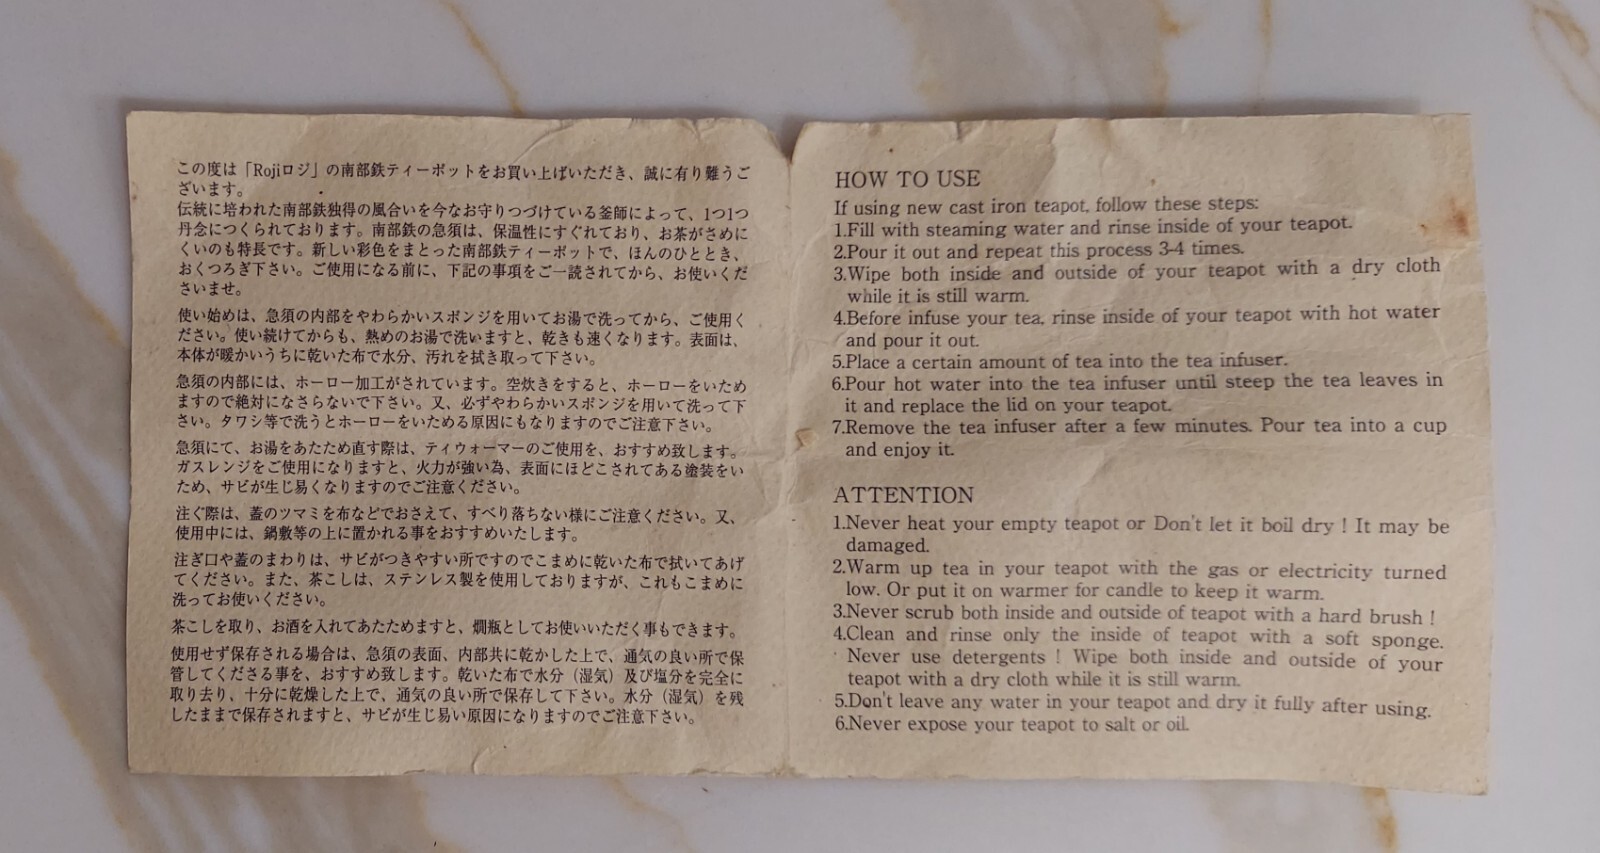 この度は「Rojiロジ」の南部鉄ティーポットをお買い上げいただき、誠に有り難うご
ざいます。
伝統に培われた南部鉄独得の風合いを今なお守りつづけている釜師によって、1つ1つ
丹念につくられております。南部鉄の急須は、保温性にすぐれており、お茶がさめに
くいのも特長です。新しい彩色をまとった南部鉄ティーポットで、ほんのひととき、
おくつろぎ下さい。ご使用になる前に、下記の事項をご一読されてから、お使いくだ
さいませ。
使い始めは、急須の内部をやわらかいスポンジを用いてお湯で洗ってから、ご使用く
ださい。使い続けてからも、熱めのお湯で洗いますと、乾きも速くなります。表面は、
本体が暖かいうちに乾いた布で水分、汚れを拭き取って下さい。
急須の内部には、ホーロー加工がされています。空炊きをすると、ホーローをいため
ますので絶対になさらないで下さい。又、必ずやわらかいスポンジを用いて洗って下
さい。タワシ等で洗うとホーローをいためる原因にもなりますのでご注意下さい。
急須にて、お湯をあたため直す際は、ティウォーマーのご使用を、おすすめ致します。
ガスレンジをご使用になりますと、火力が強い為、表面にほどこされてある塗装をい
ため、サビが生じ易くなりますのでご注意ください。
注ぐ際は、蓋のツマミを布などでおさえて、すべり落ちない様にご注意ください。又、
使用中には、鍋敷等の上に置かれる事をおすすめいたします。
注ぎ口や蓋のまわりは、サビがつきやすい所ですのでこまめに乾いた布で拭いてあげ
てください。また、茶こしは、ステンレス製を使用しておりますが、これもこまめに
洗ってお使いください。
茶こしを取り、お酒を入れてあたためますと、燗瓶としてお使いいただく事もできます。
使用せず保存される場合は、急須の表面、内部共に乾かした上で、通気の良い所で保
管してくださる事を、おすすめ致します。乾いた布で水分（湿気）及び塩分を完全に
取り去り、十分に乾燥した上で、通気の良い所で保存して下さい。水分（湿気）を残
したままで保存されますと、サビが生じ易い原因になりますのでご注意下さい。
HOW TO USE
If using new cast iron teapot, follow these steps:
1.Fill with steaming water and rinse inside of your teapot.
2.Pour it out and repeat this process 3-4 times.
3.Wipe both inside and outside of your teapot with a dry cloth
while it is still warm.
4.Before infuse your tea, rinse inside of your teapot with hot water
and pour it out.
5.Place a certain amount of tea into the tea infuser.
6.Pour hot water into the tea infuser until steep the tea leaves in
it and replace the lid on your teapot.
7.Remove the tea infuser after a few minutes. Pour tea into a cup
and enjoy it.
ATTENTION
1.Never heat your empty teapot or Don't let it boil dry ! It may be
damaged.
2.Warm up tea in your teapot with the gas or electricity turned
low. Or put it on warmer for candle to keep it warm.
3.Never scrub both inside and outside of teapot with a hard brush !
4.Clean and rinse only the inside of teapot with a soft sponge.
Never use detergents ! Wipe both inside and outside of your
teapot with a dry cloth while it is still warm.
5.Don't leave any water in your teapot and dry it fully after using.
6.Never expose your teapot to salt or oil.